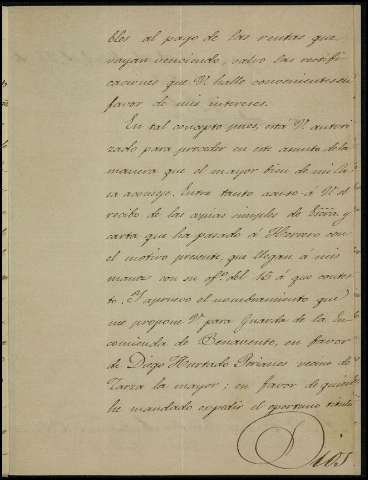 bles al pago de las rentas que
vayan venciendo, salvo las rectifi
caciones que V. halle convenientes en
favor de mis intereses.
En tal concepto pues, está V. autori
zado para proceder en este asunto de la
manera que el mayor bien de mi Ca
sa aconseje. Entre tanto acuso á V. el
recibo de las copias simples de y
carta que ha pasado á Herrero con
el motivo presente, que llegan á mis
manos con su of.º del 15 á que contes
to. Y apruevo el nombramiento que
me propone V. para Guarda de la En
comienda de Benavente, en favor
de Diego Hurtado vecino de
la mayor; en favor de quien
he mandado expedir el oportuno titulo
Dios